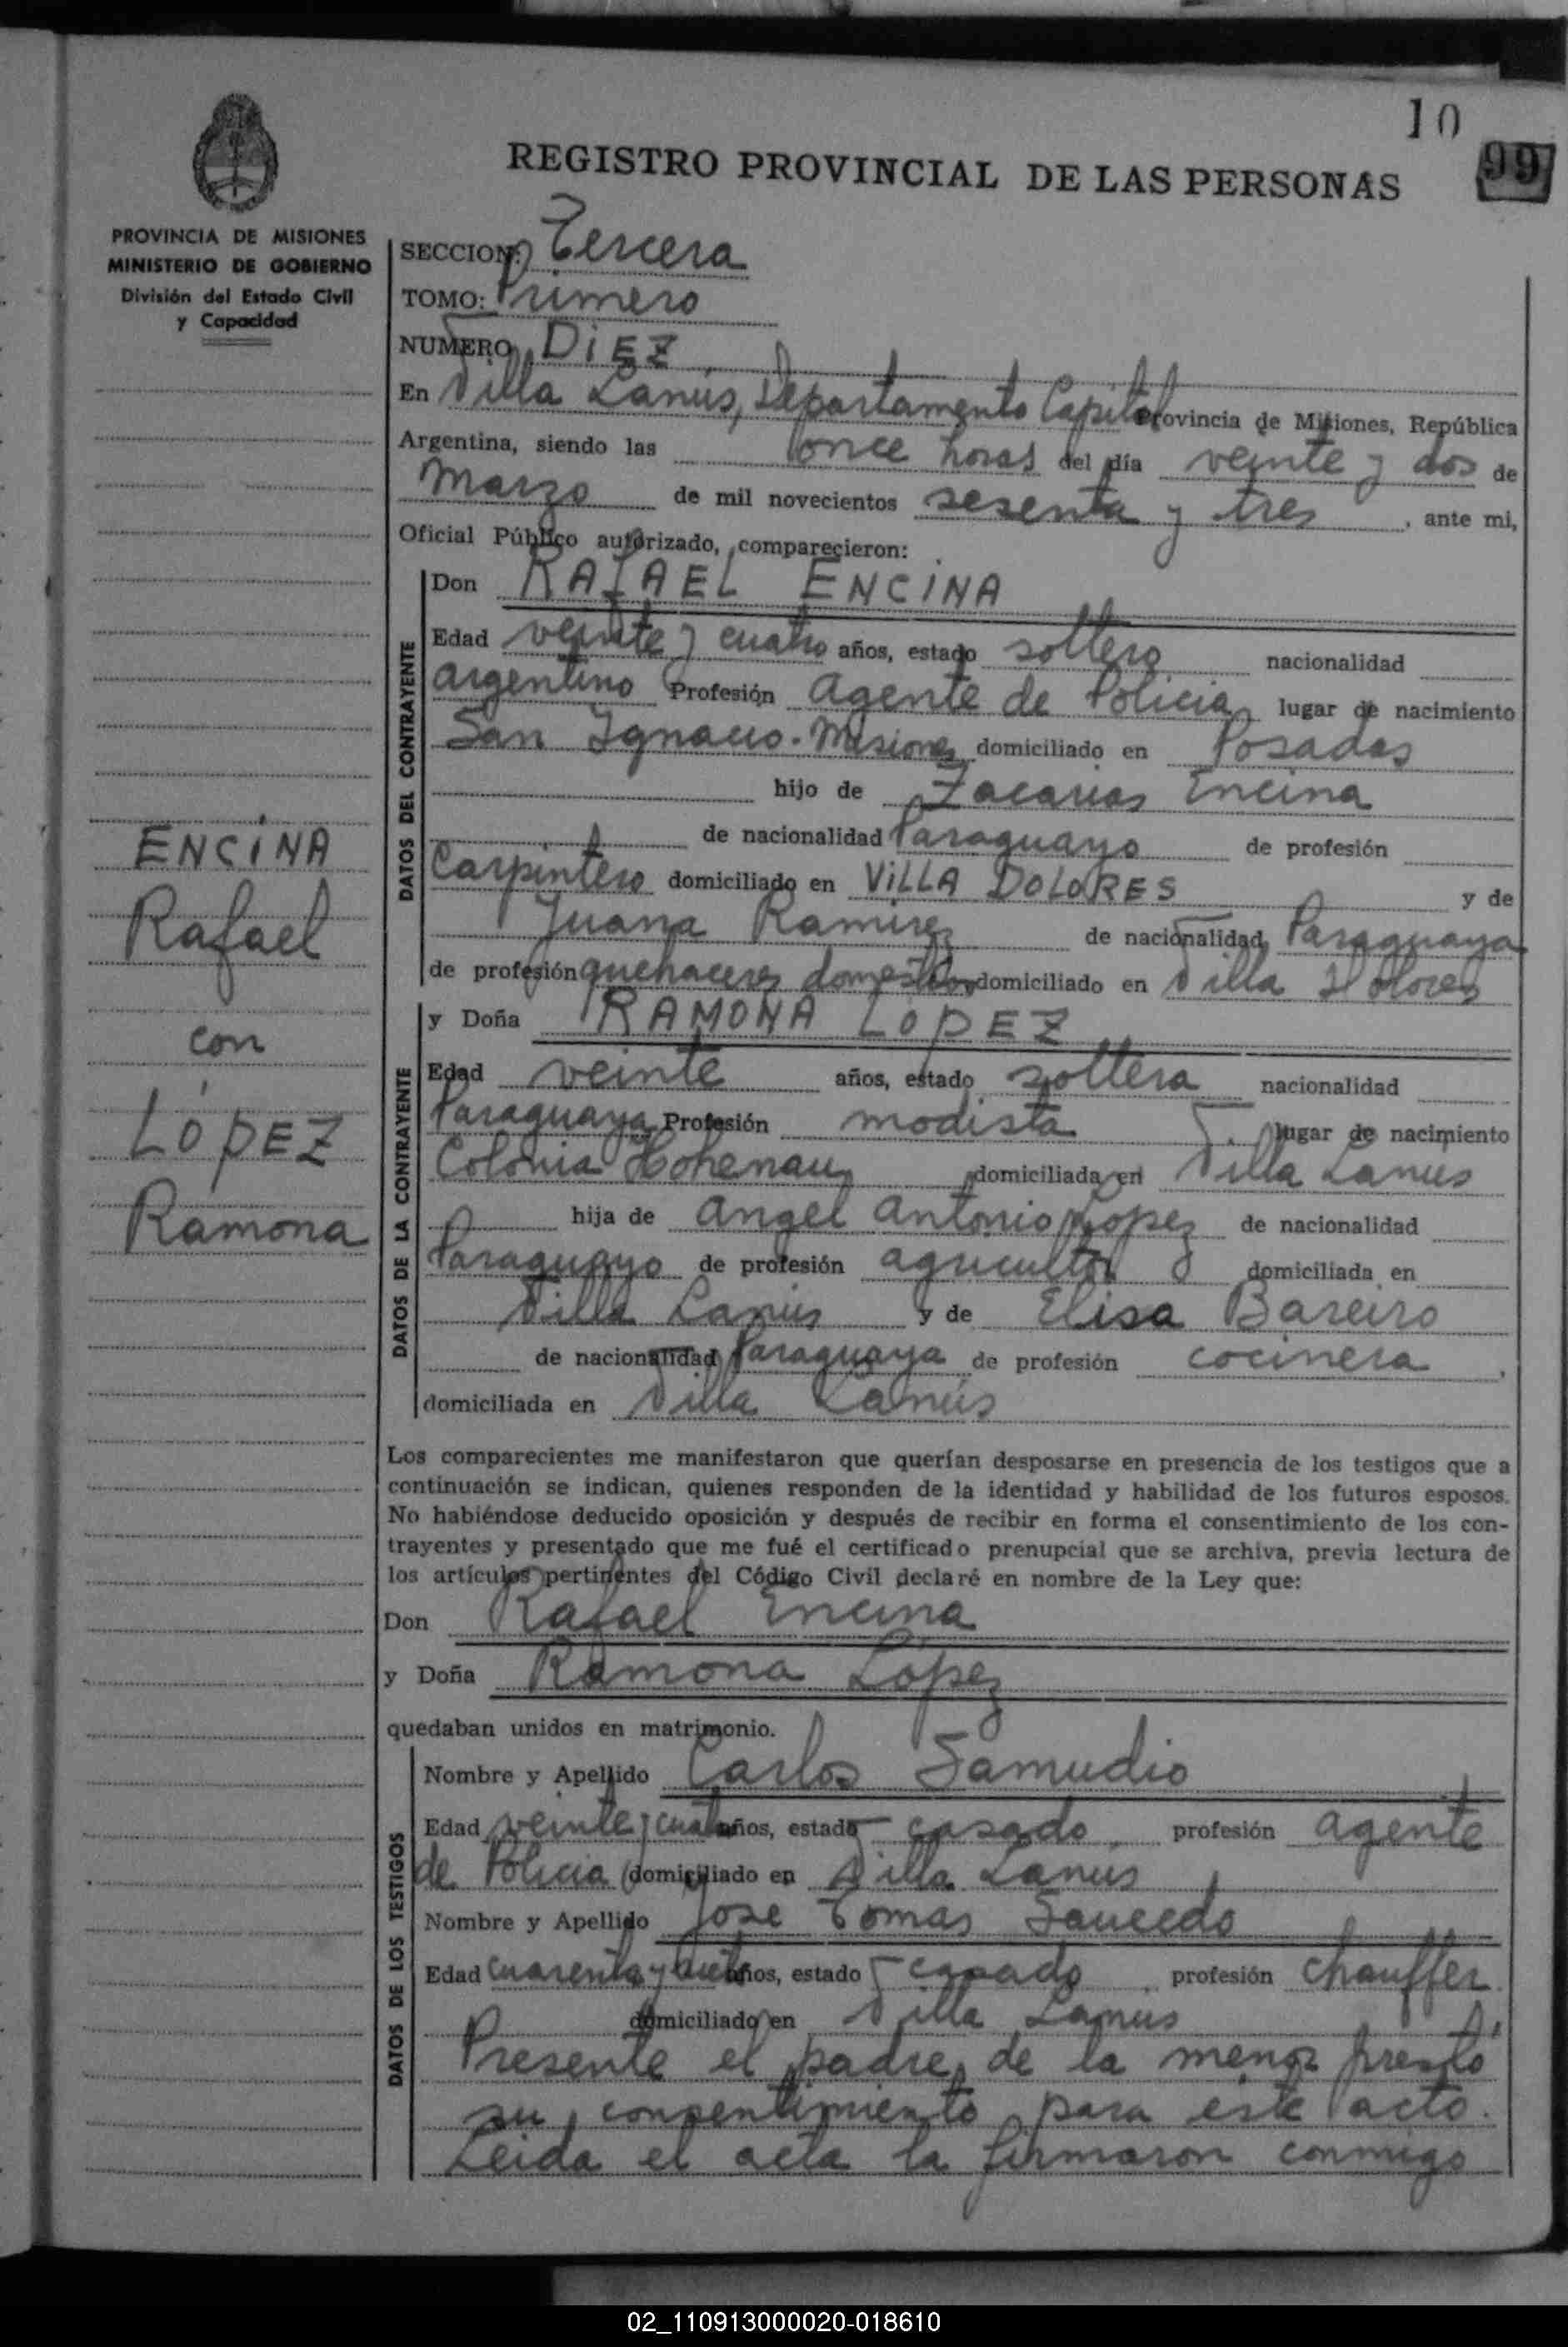 10
99
REGISTRO PROVINCIAL DE LAS PERSONAS
PROVINCIA DE MISIONES
MINISTERIO DE GOBIERNO
División del Estado Civil
y Capacidad
SECCION: Tercera
TOMO: Primero
NUMERO DiEZ
En Villa Lanús, Departamento Capital Provincia de Misiones, República
Argentina, siendo las once horas del día veinte y dos de
Marzo de mil novecientos sesenta y tres, ante mi,
Oficial Público autorizado, comparecieron:
DATOS DEL CONTRAYENTE
Don RAFAEL ENCiNA
Edad veinte y cuatro años, estado soltero nacionalidad
argentino Profesión Agente de Policia lugar de nacimiento
San Ignacio - Misiones domiciliado en Posadas
hijo de Zacarias Encina
de nacionalidad Paraguayo de profesión
Carpintero domiciliado en ViLLA DOLORES y de
Juana Ramirez de nacionalidad Paraguaya
de profesión quehaceres domesticos domiciliado en Villa Dolores
DATOS DE LA CONTRAYENTE
y Doña RAMONA LOPEZ
Edad veinte años, estado soltera nacionalidad
Paraguaya Profesión modista lugar de nacimiento
Colonia Hohenau domiciliada en Villa Lanus
hija de Angel Antonio Lopez de nacionalidad
Paraguayo de profesión agricultor domiciliada en
Villa Lanús y de Elisa Bareiro
de nacionalidad Paraguaya de profesión cocinera,
domiciliada en Villa Lanús
ENCiNA
Rafael
con
LOPEZ
Ramona
Los comparecientes me manifestaron que querían desposarse en presencia de los testigos que a
continuación se indican, quienes responden de la identidad y habilidad de los futuros esposos.
No habiéndose deducido oposición y después de recibir en forma el consentimiento de los con-
trayentes y presentado que me fué el certificado prenupcial que se archiva, previa lectura de
los artículos pertinentes del Código Civil declaré en nombre de la Ley que:
Don Rafael Encina
y Doña Ramona Lopez
quedaban unidos en matrimonio.
DATOS DE LOS TESTIGOS
Nombre y Apellido Carlos Samudio
Edad veinte y cuatro años, estado casado profesión agente
de Policia domiciliado en Villa Lanús
Nombre y Apellido Jose Tomas Saucedo
Edad cuarenta y años, estado casado profesión chauffer
domiciliado en Villa Lanús
Presente el padre de la menor prestó
su consentimiento para este acto.
Leida el acta la firmaron conmigo
02_110913000020-018610